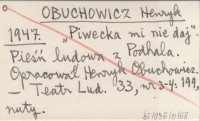 OBUCHOWICZ Henryk
1947. „Piwecka mi nie daj".
Pieśń ludowa z Podhala.
Opracował Henryk Obuchowicz.
— Teatr Lud. 33, nr 3-4: 199,
nuty.